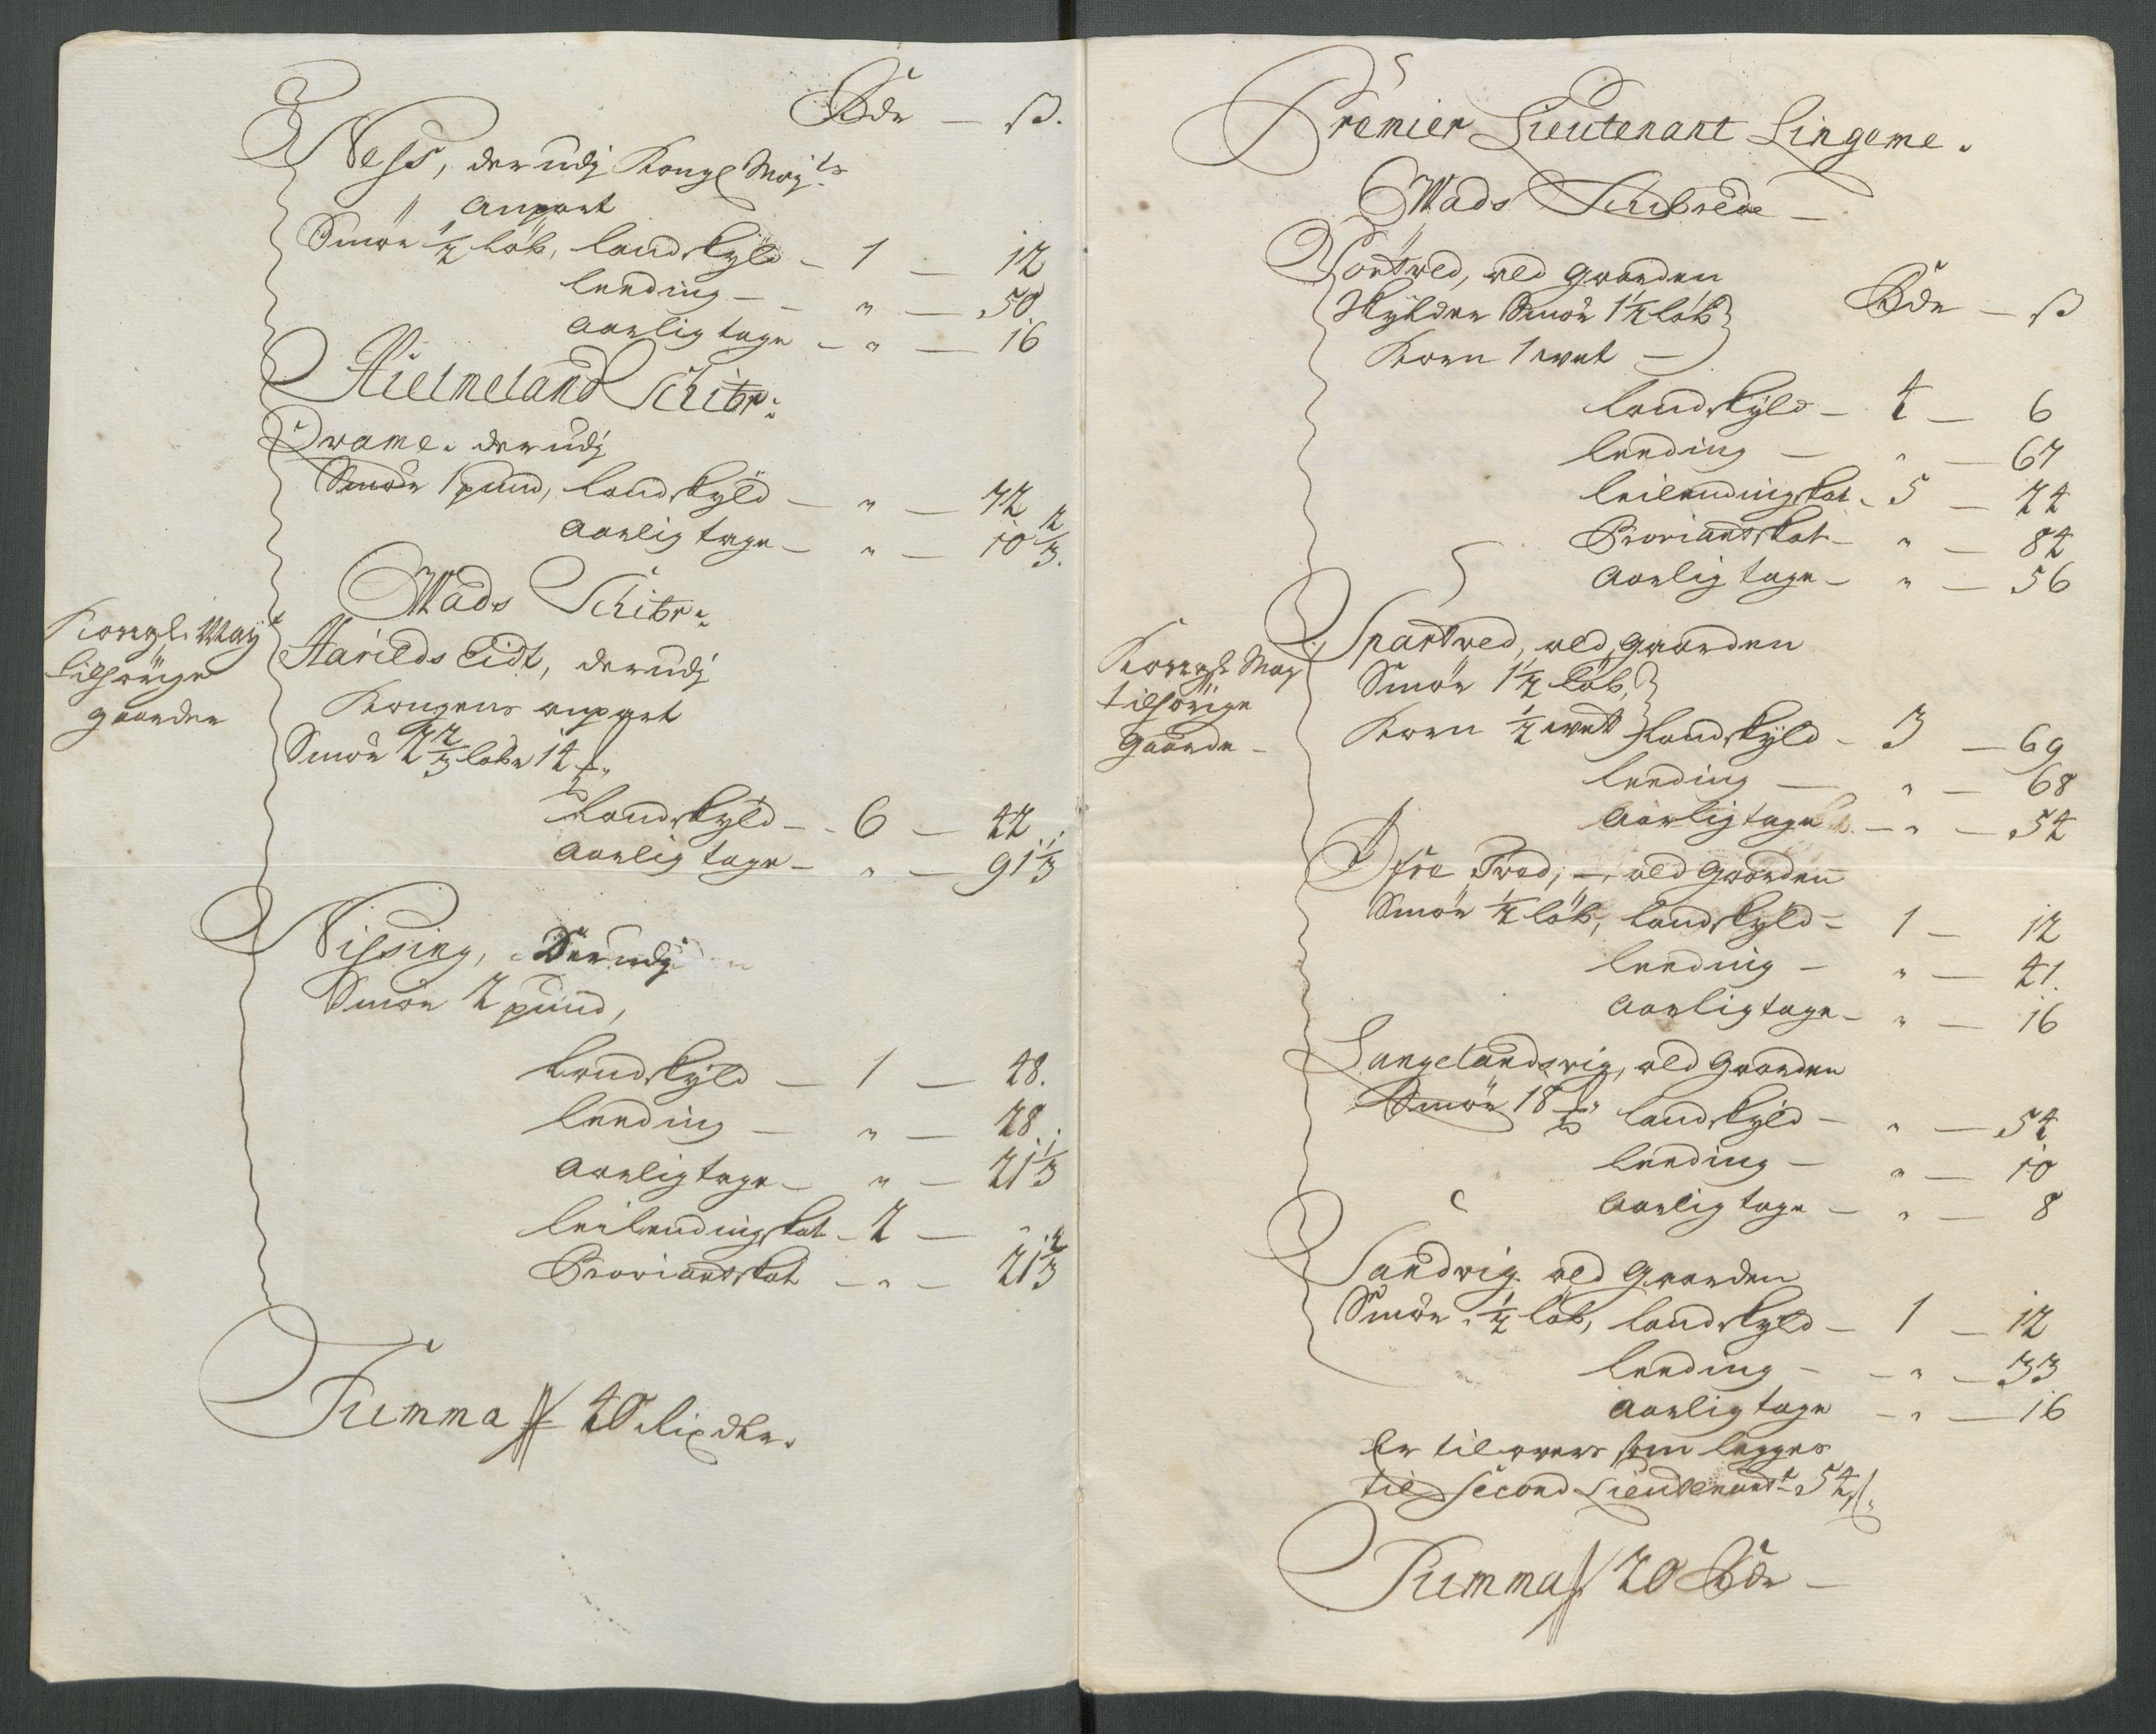 Rdr — ß.
Ness, derudj Kongl Mayts
anpart
Smör 1/2 löb, landskyld — 1 — 12
leeding — " — 50
aarlig tage — " — 16
Hielmeland Schibr:
Qvame. derudj
Smör 1 pund, landskyld — " — 72
aarlig tage — " — 10 2/3.
Wads Schibr:
Kongl. Mayt
tilhörige
gaarder
Harilds Eidt, derudj
Kongens anpart
Smör 2 2/3 löbe 12
landskyld — 6 — 42
aarlig tage — " — 91 1/3
Nissing, Derudj
Smör 2 pund,
landskyld — 1 — 48.
leeding — " — 28.
aarlig tage — " — 21 1/3
leilendingskat — 2 — "
Proviantskat — " — 21 2/3
Summa 40 Rixdlr.
Premier Lieutenant Lingeme.
Wads Schibrede —
Tortved, ald gaarden
Rdr — ß
Skylder Smör 1 1/2 löb
Korn 1 wet —
landskyld — 4 — 6
leeding — " — 67
leilendingskat — 5 — 24
Proviantskat — " — 84
aarlig tage — " — 56
Kongl. May
tilhörige
gaarde —
Spartved, ald gaarden
Smör 1 1/2 löb,
Korn 1/2 wett landskyld — 3 — 69
leeding — " — 68
aarlig tage — " — 54
Öfre Tved, — ald gaarden
Smör 1/2 löb, landskyld — 1 — 12
leeding — " — 41.
aarlig tage — " — 16
Langelandsvig, ald gaarden
Smör 18 landskyld — " — 54
leeding — " — 10
aarlig tage — " — 8
Sandvig ald gaarden
Smör 1/2 löb, landskyld — 1 — 12
leeding — " — 33
aarlig tage — " — 16
Er til overs som legges
til Second Lieutenant 54 ß
Summa 20 Rdr —